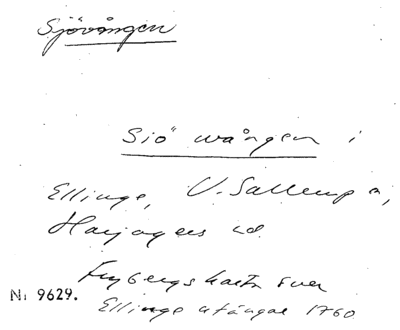 Sjövången
Siö wången i
Ellinge, V. Sallerup s;
Harjagers hd.
Frybergs karta över
Ni 9629.
Ellinge utängar 1760